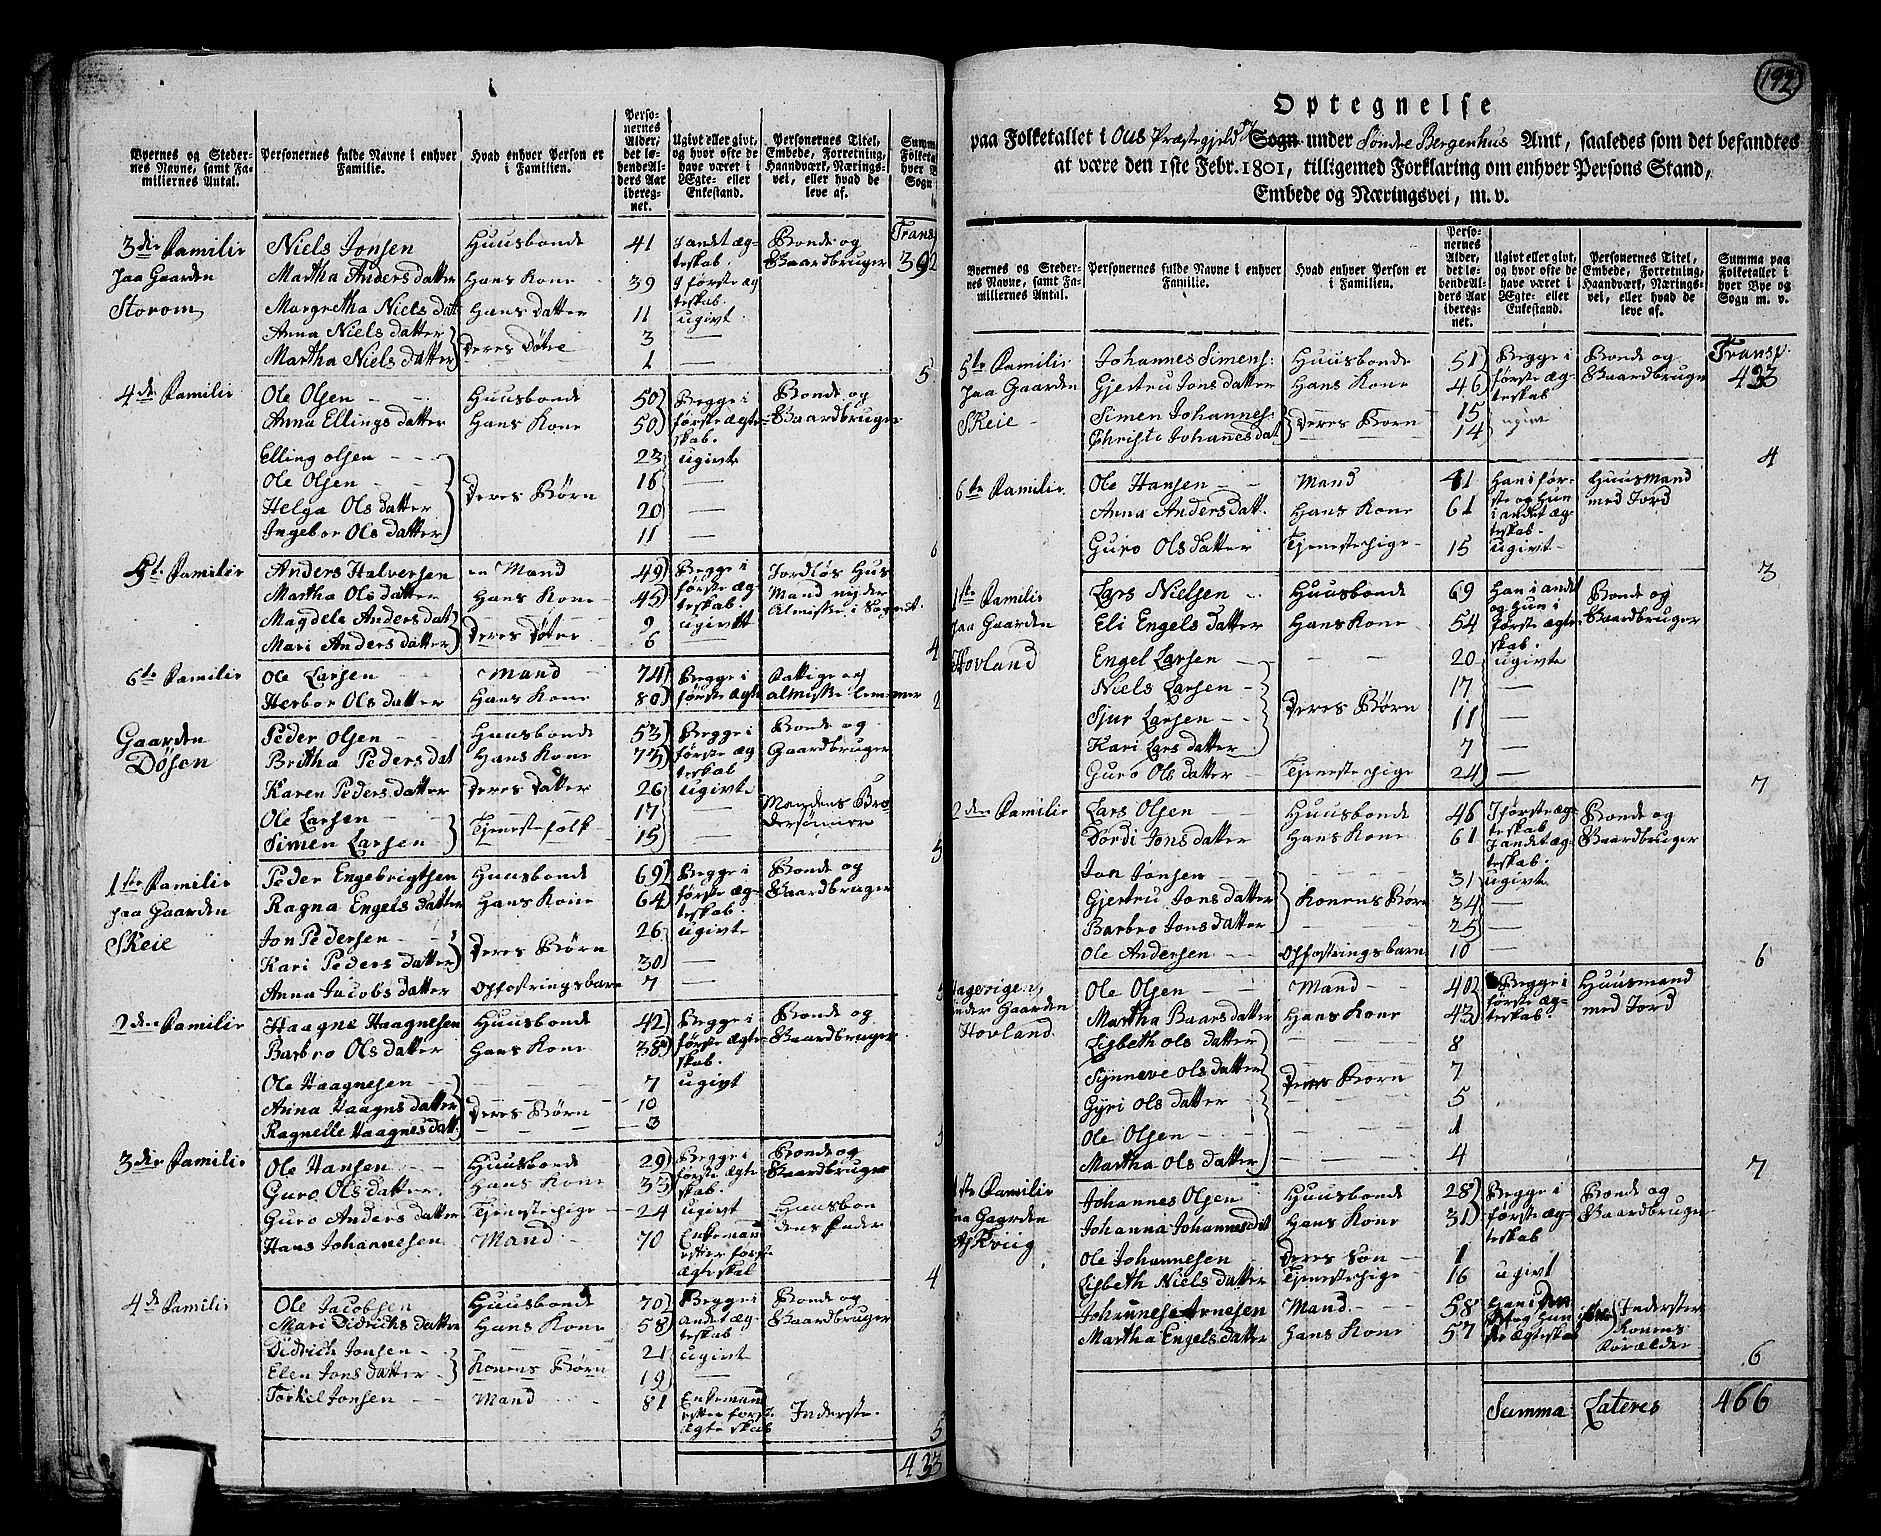 Byernes og Steder-
nes Navne, samt Fa-
miliernes Antal.
Personernes fulde Navne i enhver
Familie.
Hvad enhver Person er
i Familien.
Perso-
nernes
Alder,
det lø-
bende Al-
ders Aar
ibereg-
net.
Ugivt eller givt,
og hvor ofte de
have været i
Ægte- eller
Enkestand.
Personernes Titel,
Embede, Forretning,
Haandværk, Nærings-
vei, eller hvad de
leve af.
3die Familie Niels Jonsen Huusbonde 41 I andet æg- Bonde og Trans
paa Gaarden teskab Gaardbruger 392
Martha Anders datter Hans Kone 39 I første æg
Storom teskab.
Margretha Niels datt Hans datter 11 ugivt
Anna Niels datter 3 —
Martha Niels datter Deres Døtre 1 — 5
4de Familie Ole Olsen Huusbonde 50 Begge i Bonde og
Anna Ellings datter Hans Kone 50 første ægte Gaardbruger
skab.
Elling olsen 23 ugivte
Ole Olsen 16 —
Helga Ols datter Deres Børn 20 —
Ingebor Ols datter 11 — 6
5te Familie Anders Halversen en Mand 49 Begge i Jordløs Hus
Martha Ols datter Hans Kone 45 første æg Mand nyder
teskab. Almisse i Sognet.
Magdele Anders datt 9 ugivt
Mari Anders datter Deres Døtre 6 — 4
6te Familie Ole Larsen Mand 74 Begge i Fattige af
Herbor Ols datter Hans Kone 80 første ægte almisse lemmer 2
Gaarden Peder Olsen Huusbonde 53 Begge i Bonde og
Døsen Britha Peders dat Hans Kone 73 første æg Gaardbruger
teskab
Karen Peders datter Deres datter 26 ugivte
Ole Larsen 17 — Mandens Bro
Simen Larsen Tjenestefolk 15 — dersønner 5
1ste Familie Peder Engebrigtsen Huusbonde 69 Begge i Bonde og
paa Gaarden Ragna Engels datter Hans Kone 64 første æg Gaardbruger
teskab.
Skeie Jon Pedersen 26 ugivte
Kari Peders datter Deres Børn 30 —
Anna Jacobs datter Opfostringsbarn 7 — 5
2den Familie Haagne Haagnesen Huusbonde 42 Begge i Bonde og
Barbro Ols datter Hans Kone 38 første ægte Gaardbruger
skab.
Ole Haagnesen 7 ugivt
Anna Haagns datter Deres Børn 10
Ragnelle Haagnes datt. 3 5
3die Familie Ole Hansen Huusbonde 29 Begge i Bonde og
Guro Ols datter Hans Kone 33 første ægte Gaardbruger
skab.
Guro Anders datter Tjenestepige 24 ugivt Huusbon
Hans Johannesen Mand 70 Enkemand dens fader
efter første
ægteskab 4
4de Familie Ole Jacobsen Huusbonde 70 Begge i Bonde og
Mari Didrichs datter Hans Kone 58 andet æg Gaardbruger
teskab
Didrich Jonsen 21 ugivte
Elen Jons datter Konens Børn 19 —
Torkel Jonsen Mand 81 Enkemand
efter første Inderste.
ægteskab 5
433
192
Optegnelse
paa Folketallet i Ous Præstegjeld Sogn under Søndre Bergenhus Amt, saaledes som det befandtes
at være den 1ste Febr. 1801, tilligemed Forklaring om enhver Persons Stand,
Embede og Næringsvei, m. v.
Byernes og Steder-
nes Navne, samt Fa-
miliernes Antal.
Personernes fulde Navne i enhver
Familie.
Hvad enhver Person er
i Familien.
Perso-
nernes
Alder,
det lø-
bende Al-
ders Aar
ibereg-
net.
Ugivt eller givt,
og hvor ofte de
have været i
Ægte- eller
Enkestand.
Personernes Titel,
Embede, Forretning,
Haandværk, Nærings-
vei, eller hvad de
leve af.
Summa paa
Folketallet i
hver Bye og
Sogn m. v.
5te Familie Johannes Simens. Huusbonde 51 Begge i Bonde og Transp.
paa Gaarden Gjertru Jons datter Hans Kone 46 første æg- Gaardbruger 433
teskab
Skeie Simen Johannes. 15 ugivt
Christi Johanes dat Deres Born 14 4
6te Familie Ole Hansen Mand 41 Han i før- Huusmand
Anna Anders datt. Hans Kone 61 ste og Hun med Jord
i andet æg
teskab.
Guro Ols datter Tjenestepige 15 ugivt 3
1ste Familie Lars Nielsen Huusbonde 69 Han i andet Bonde og
paa Gaarden Eli Engels datter Hans Kone 54 og Hun i Gaardbruger
første ægte
skab.
Hovland Engel Larsen 20 ugivte
Niels Larsen 17 —
Sjur Larsen Deres Børn 11 —
Kari Lars datter 7 —
Guro Ols datter Tjenestepige 24 — 7
2den Familie Lars Olsen Huusbonde 46 I første æg Bonde og
Dordi Jons datter Hans Kone 61 teskab Gaardbruger
I andet æg
teskab.
Jon Jonsen 31 ugivte
Gjertru Jons datter Konens Børn 34 —
Barbro Jons datter 25 —
Ole Andersen Opfostringsbarn 10 — 6
Ole Olsen Mand 40 Begge i Huusmand
under Gaarden Martha Baars datter Hans Kone 43 første æg- med Jord
Hovland teskab.
Lisbeth Ols datter 8
Synneve Ols datter Deres Born 7
Gyri Ols datter 5
Ole Olsen 1
Martha Ols datter 4 7
1ste Familie Johannes Olsen Huusbonde 28 Begge i Bonde og
paa Gaarden Johanna Johannes dat Hans Kone 31 første æg Gaardbruger
teskab
Ole Johannesen Deres Søn 1
Lisbeth Niels datter Tjenestepige 16 ugivt
Johannes Arnesen Mand 58 Han i Inderster
Martha Engels datter Hans Kone 57 ægteskab Konens
Forældre 6
Summa Lateres 466